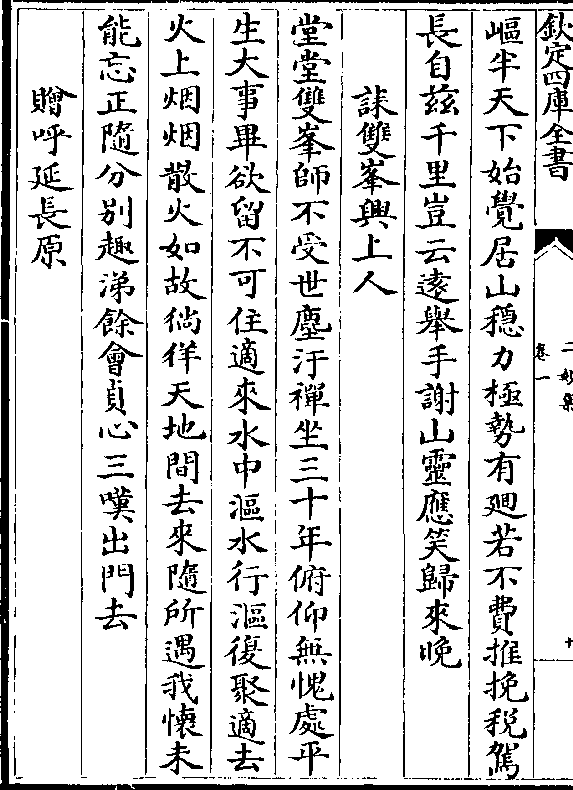 欽定四庫全書
二妙集
卷一
十
嶇半天下始覺居山穩力極勢有廻若不費推挽税駕
長自兹千里豈云逺舉手謝山靈應笑歸來晚
誄雙峯興上人
堂堂雙峯師不受世塵汙禪坐三十年俯仰無愧處平
生大事畢欲留不可住適來水中漚水行漚復聚適去
火上烟烟散火如故徜徉天地間去來隨所遇我懷未
能忘正隨分别趣涕餘會貞心三嘆出門去
贈呼延長原